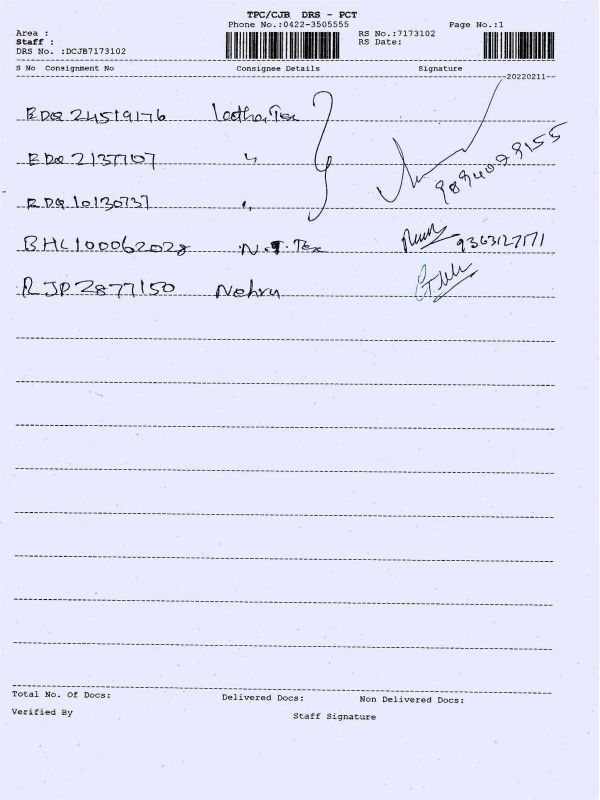 TPC/CJB DRS - PCT
Phone No.:0422-3505555
Page No.:1
Area :
RS No.:7173102
Staff :
RS Date:
DRS No. :DCJB7173102
S No Consignment No Consignee Details Signature
20220211
EDQ 24519176 Tex
EDQ 2137707 "
EDQ 10130737 "
9894079155
BHL100062028 N.T. Tex 9363127171
RJP2877150 Nehru
Total No. Of Docs: Delivered Docs: Non Delivered Docs:
Verified By Staff Signature